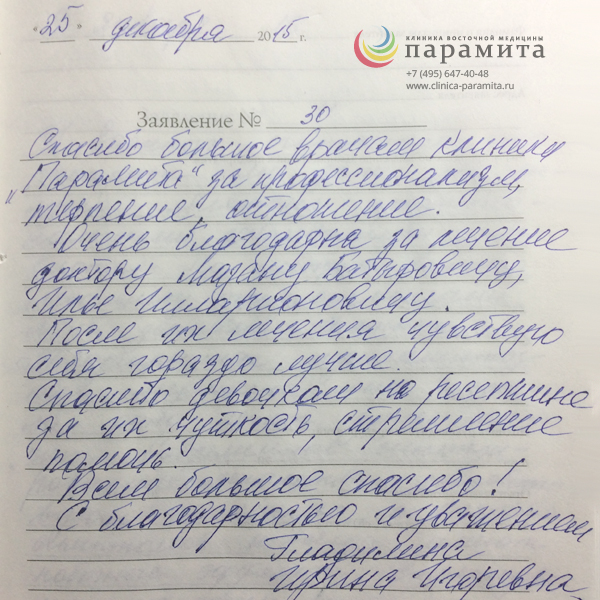 «25» декабря 2015 г.
КЛИНИКА ВОСТОЧНОЙ МЕДИЦИНЫ
парамита
+7 (495) 647-40-48
www.clinica-paramita.ru
Заявление № 30
Спасибо большое врачам клиники
„Парамита" за профессионализм,
терпение, отношение.
Очень благодарна за лечение
доктору
Илье Илларионовичу.
После их лечения чувствую
себя гораздо лучше.
Спасибо девочкам на ресепшине
за их чуткость, стремление
помочь.
Всем большое спасибо!
С благодарностью и уважением
Гладилина
Ирина Игоревна